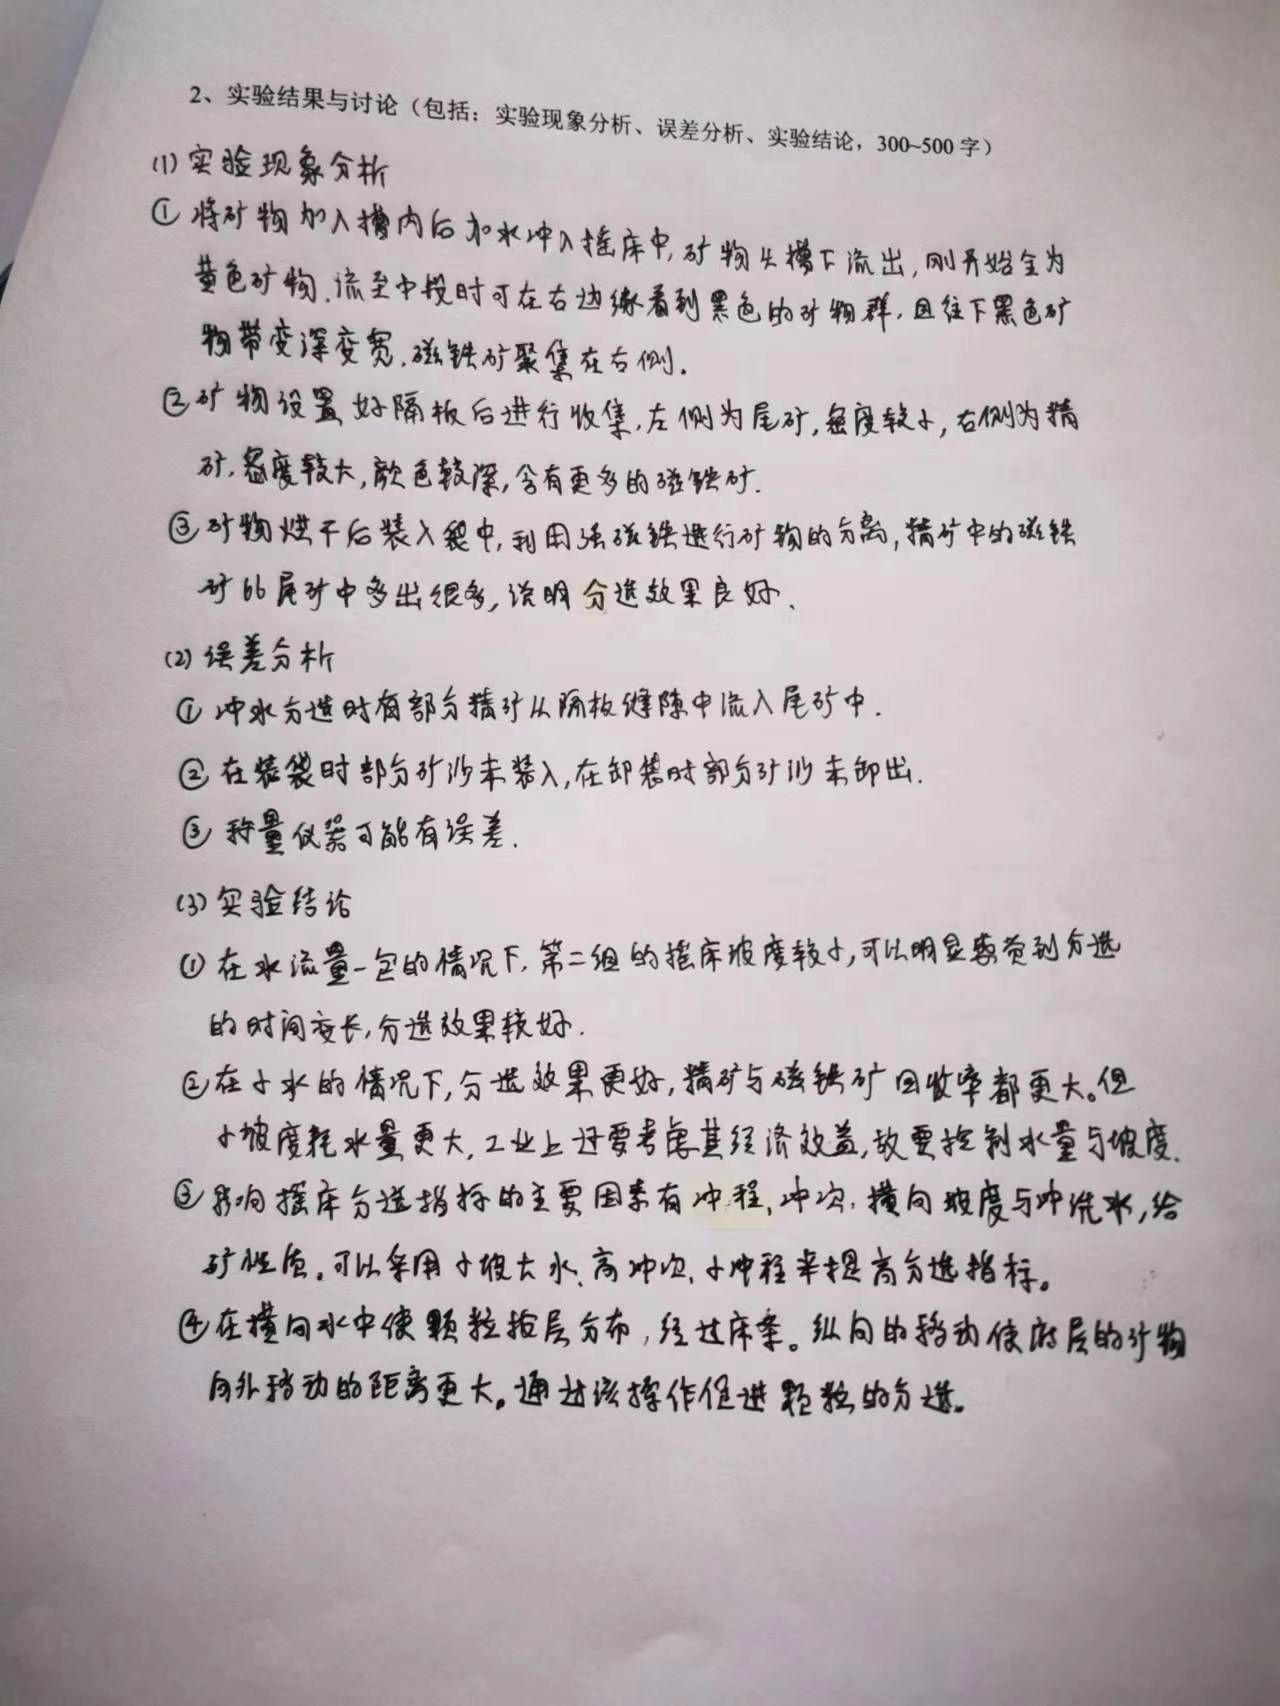 2、实验结果与讨论（包括：实验现象分析、误差分析、实验结论，300~500字）
(1) 实验现象分析
① 将矿物加入槽内后加水冲入摇床中,矿物从槽下流出,刚开始全为
黄色矿物.流至中段时可在右边缘看到黑色的矿物群.且往下黑色矿
物带变深变宽.磁铁矿聚集在右侧.
② 矿物设置好隔板后进行收集,左侧为尾矿,密度较小,右侧为精
矿.密度较大,颜色较深,含有更多的磁铁矿.
③ 矿物烘干后装入袋中,利用强磁铁进行矿物的分离,精矿中的磁铁
矿比尾矿中多出很多,说明分选效果良好.
(2) 误差分析
① 冲水分选时有部分精矿从隔板缝隙中流入尾矿中.
② 在装袋时部分矿沙未装入,在卸袋时部分矿沙未卸出.
③ 称量仪器可能有误差.
(3) 实验结论
① 在水流量一定的情况下.第二组的摇床坡度较小,可以明显感觉到分选
的时间变长,分选效果较好.
② 在小水的情况下,分选效果更好,精矿与磁铁矿回收率都更大。但
小坡度耗水量更大,工业上还要考虑其经济效益,故要控制水量与坡度.
③ 影响摇床分选指标的主要因素有冲程,冲次.横向坡度与冲洗水,给
矿性质。可以采用小坡大水、高冲次、小冲程来提高分选指标。
④ 在横向水中使颗粒按层分布,经过床条。纵向的移动使底层的矿物
向外移动的距离更大。通过该操作促进颗粒的分选。